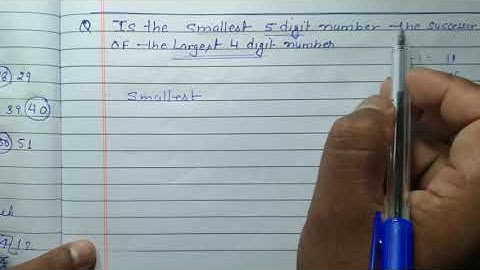 Q Is the smallest 5 digit number the successor
OF the largest 4 digit number
Smallest
29
39 40
51
12